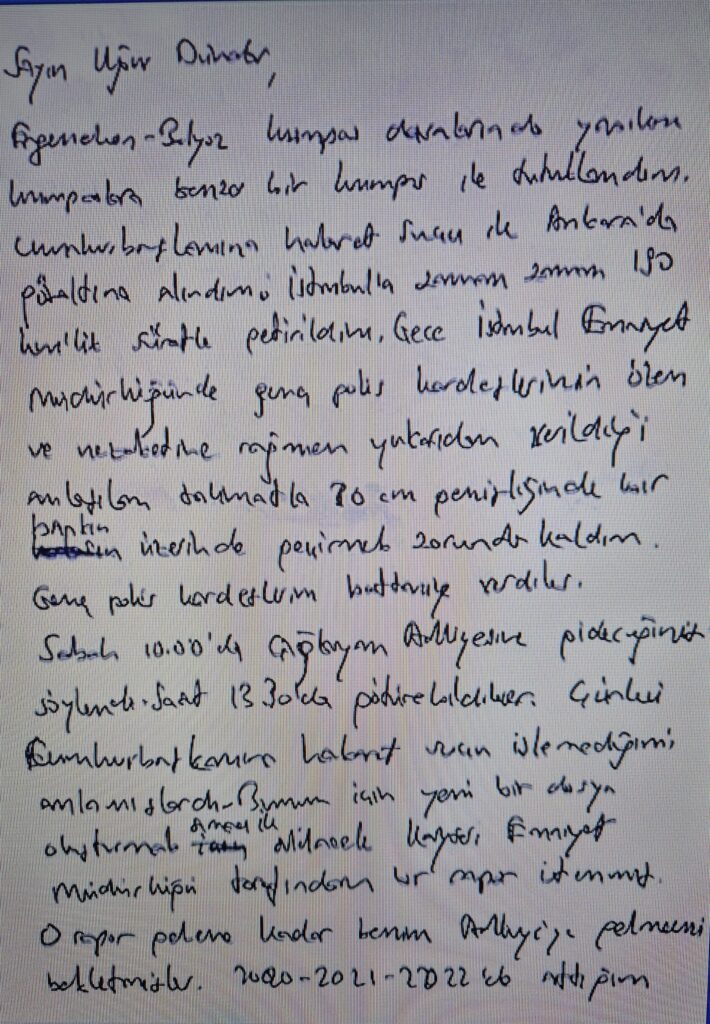 Sayın Uğur Dündar,
Ergenekon-Balyoz kumpas davalarında yapılan
kumpaslara benzer bir kumpas ile tutuklandım.
Cumhurbaşkanına hakaret suçu ile Ankara'da
gözaltına alındım, İstanbul'a zaman zaman 190
km'lik süratle getirildim. Gece İstanbul Emniyet
Müdürlüğünde genç polis kardeşlerimin özen
ve nezaketine rağmen yukarıdan verildiği
anlaşılan talimatla 70 cm genişliğinde bir
bankın üzerinde geçirmek zorunda kaldım.
Genç polis kardeşlerim battaniye verdiler.
Sabah 10.00'da Çağlayan Adliyesine gideceğimiz
söylendi. Saat 13.30'da götürebildiler. Çünkü
Cumhurbaşkanına hakaret suçu işlemediğimi
anlamışlardı. Bunun için yeni bir dosya
oluşturmak amacı ile Kayseri Emniyet
Müdürlüğü tarafından bir rapor istenmiş.
O rapor gelene kadar benim Adliyeye gelmemi
bekletmişler. 2020-2021-2022'de attığım